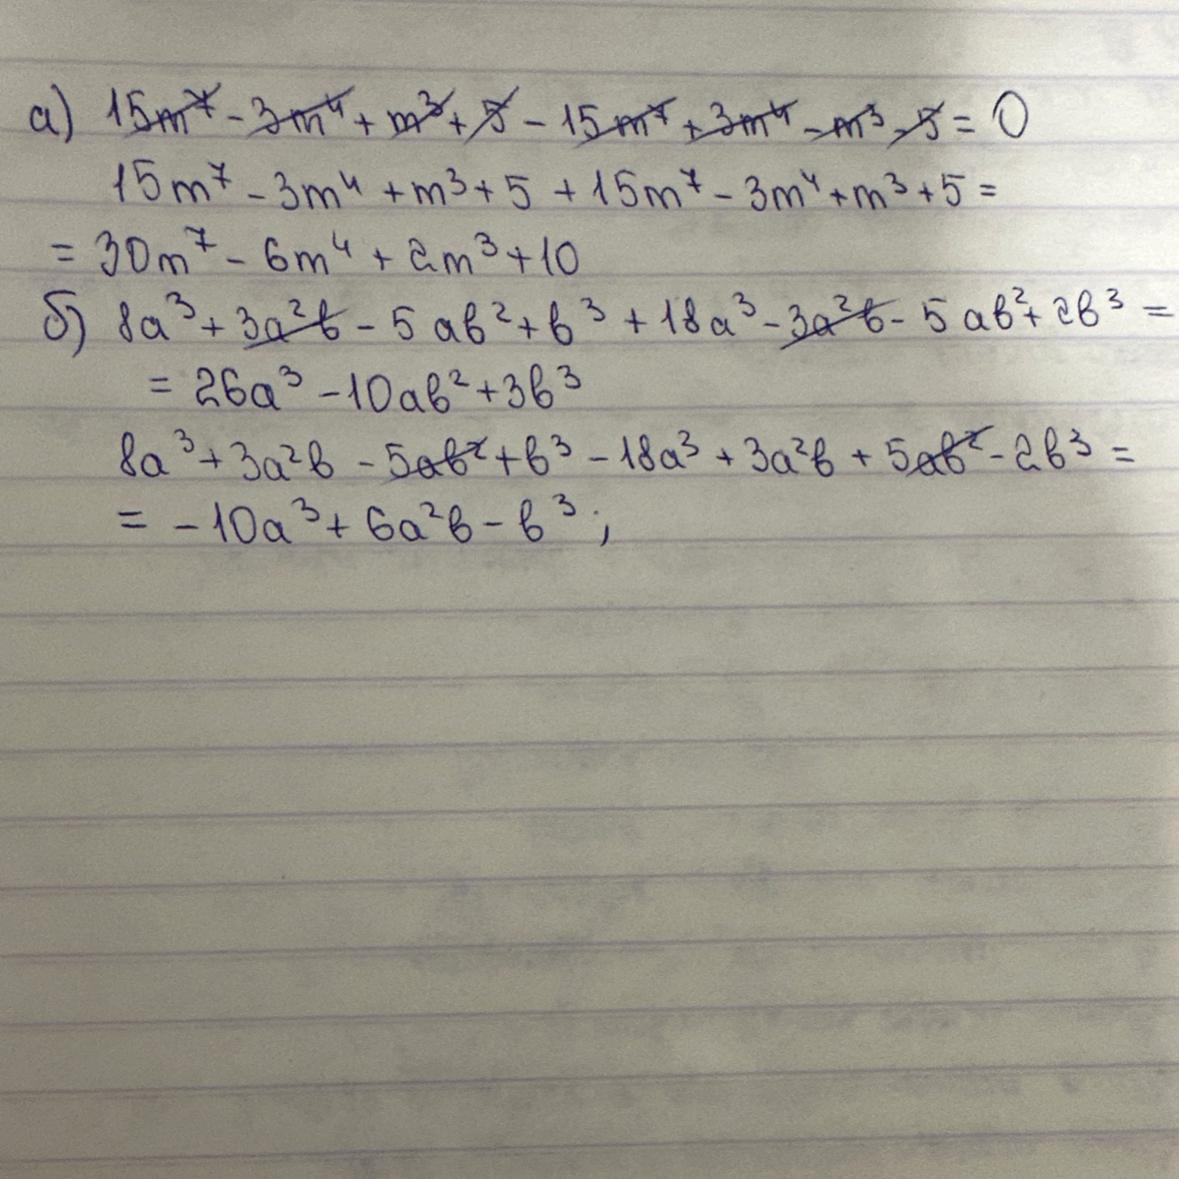 а) 15m⁷ - 3m⁴ + m³ + 5 - 15m⁷ + 3m⁴ - m³ - 5 = 0
15m⁷ - 3m⁴ + m³ + 5 + 15m⁷ - 3m⁴ + m³ + 5 =
= 30m⁷ - 6m⁴ + 2m³ + 10
б) 8a³ + 3a²b - 5ab² + b³ + 18a³ - 3a²b - 5ab² + 2b³ =
= 26a³ - 10ab² + 3b³
8a³ + 3a²b - 5ab² + b³ - 18a³ + 3a²b + 5ab² - 2b³ =
= -10a³ + 6a²b - b³;